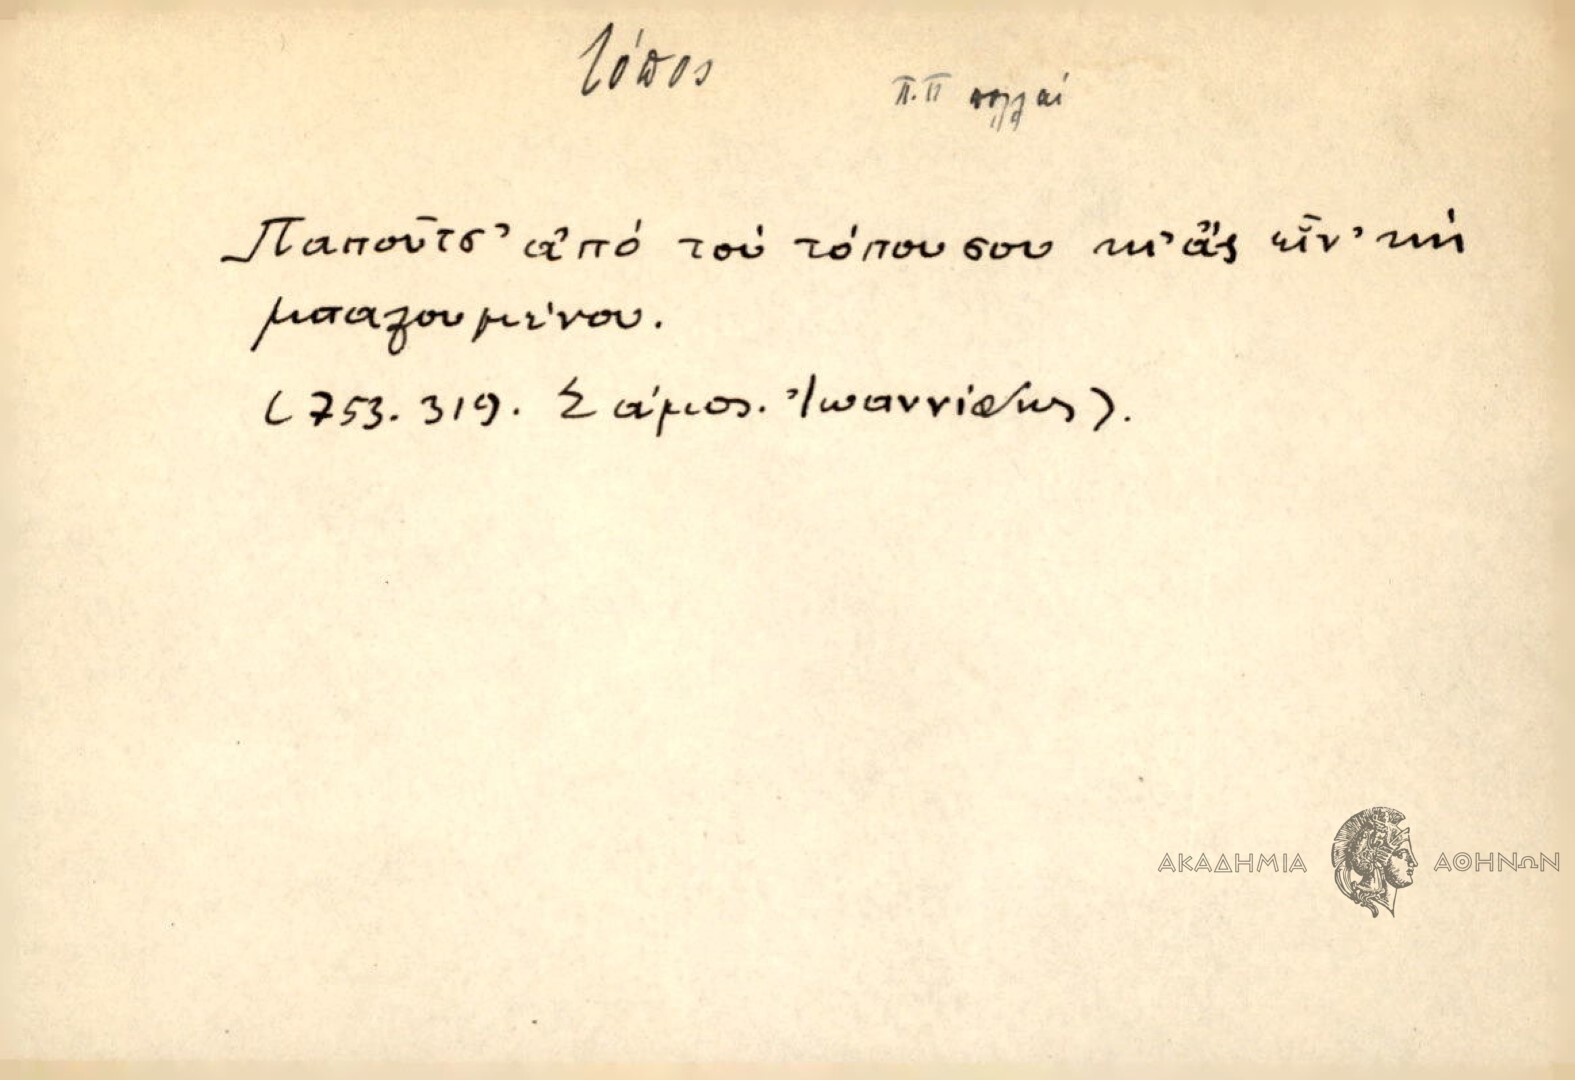 τόπος
Π.Π πολλαί
Παποῦτσ' ἀπό τού τόπου σου κι' ἄς εἶν' κή
μπαλουμένου.
(753. 319. Σάμος. Ἰωαννίδης).
ΑΚΑΔΗΜΙΑ ΑΘΗΝΩΝ